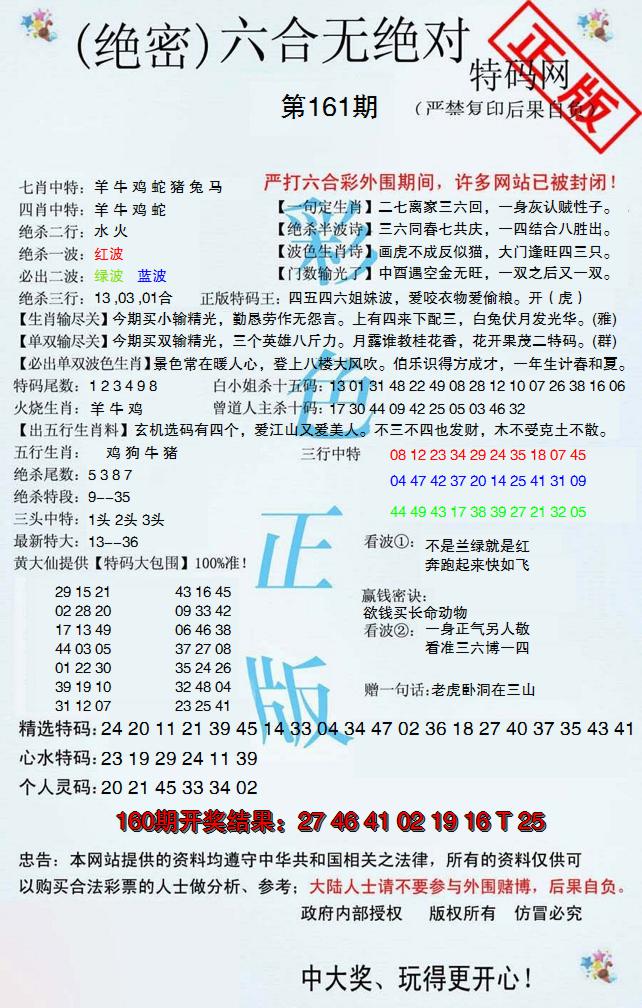 (绝密)六合无绝对
特码网
正版
第161期
(严禁复印后果自负)
七肖中特：羊 牛 鸡 蛇 猪 兔 马
四肖中特：羊 牛 鸡 蛇
绝杀二行：水 火
绝杀一波：红波
必出二波：绿波 蓝波
绝杀三行：13 ,03 ,01合
严打六合彩外围期间，许多网站已被封闭！
【一句定生肖】二七离家三六回，一身灰认贼性子。
【绝杀半波诗】三六同春七共庆，一四结合八胜出。
【波色生肖诗】画虎不成反似猫，大门逢旺四三只。
【门数输光了】中酉遇空金无旺，一双之后又一双。
正版特码王：四五四六姐妹波，爱咬衣物爱偷粮。开（虎）
【生肖输尽关】今期买小输精光，勤恳劳作无怨言。上有四来下配三，白兔伏月发光华。(雅)
【单双输尽关】今期买双输精光，三个英雄八斤力。月露谁教桂花香，花开果茂二特码。(群)
【必出单双波色生肖】景色常在暖人心，登上八楼大风吹。伯乐识得方成才，一年生计春和夏。
特码尾数：1 2 3 4 9 8
白小姐杀十五码：13 01 31 48 22 49 08 28 12 10 07 26 38 16 06
火烧生肖：羊 牛 鸡
曾道人主杀十码：17 30 44 09 42 25 05 03 46 32
【出五行生肖料】玄机选码有四个，爱江山又爱美人。不三不四也发财，木不受克土不散。
五行生肖：鸡 狗 牛 猪
绝杀尾数：5 3 8 7
绝杀特段：9--35
三头中特：1头 2头 3头
最新特大：13--36
三行中特 08 12 23 34 29 24 35 18 07 45
04 47 42 37 20 14 25 41 31 09
44 49 43 17 38 39 27 21 32 05
黄大仙提供【特码大包围】100%准！
29 15 21 43 16 45
02 28 20 09 33 42
17 13 49 06 46 38
44 03 05 37 27 08
01 22 30 35 24 26
39 19 10 32 48 04
31 12 07 23 25 41
看波①：不是兰绿就是红
奔跑起来快如飞
赢钱密诀：
欲钱买长命动物
看波②：一身正气另人敬
看准三六博一四
赠一句话：老虎卧洞在三山
彩
色
正
版
精选特码：24 20 11 21 39 45 14 33 04 34 47 02 36 18 27 40 37 35 43 41
心水特码：23 19 29 24 11 39
个人灵码：20 21 45 33 34 02
160期开奖结果：27 46 41 02 19 16 T 25
忠告：本网站提供的资料均遵守中华共和国相关之法律，所有的资料仅供可
以购买合法彩票的人士做分析、参考；大陆人士请不要参与外围赌博，后果自负。
政府内部授权 版权所有 仿冒必究
中大奖、玩得更开心！